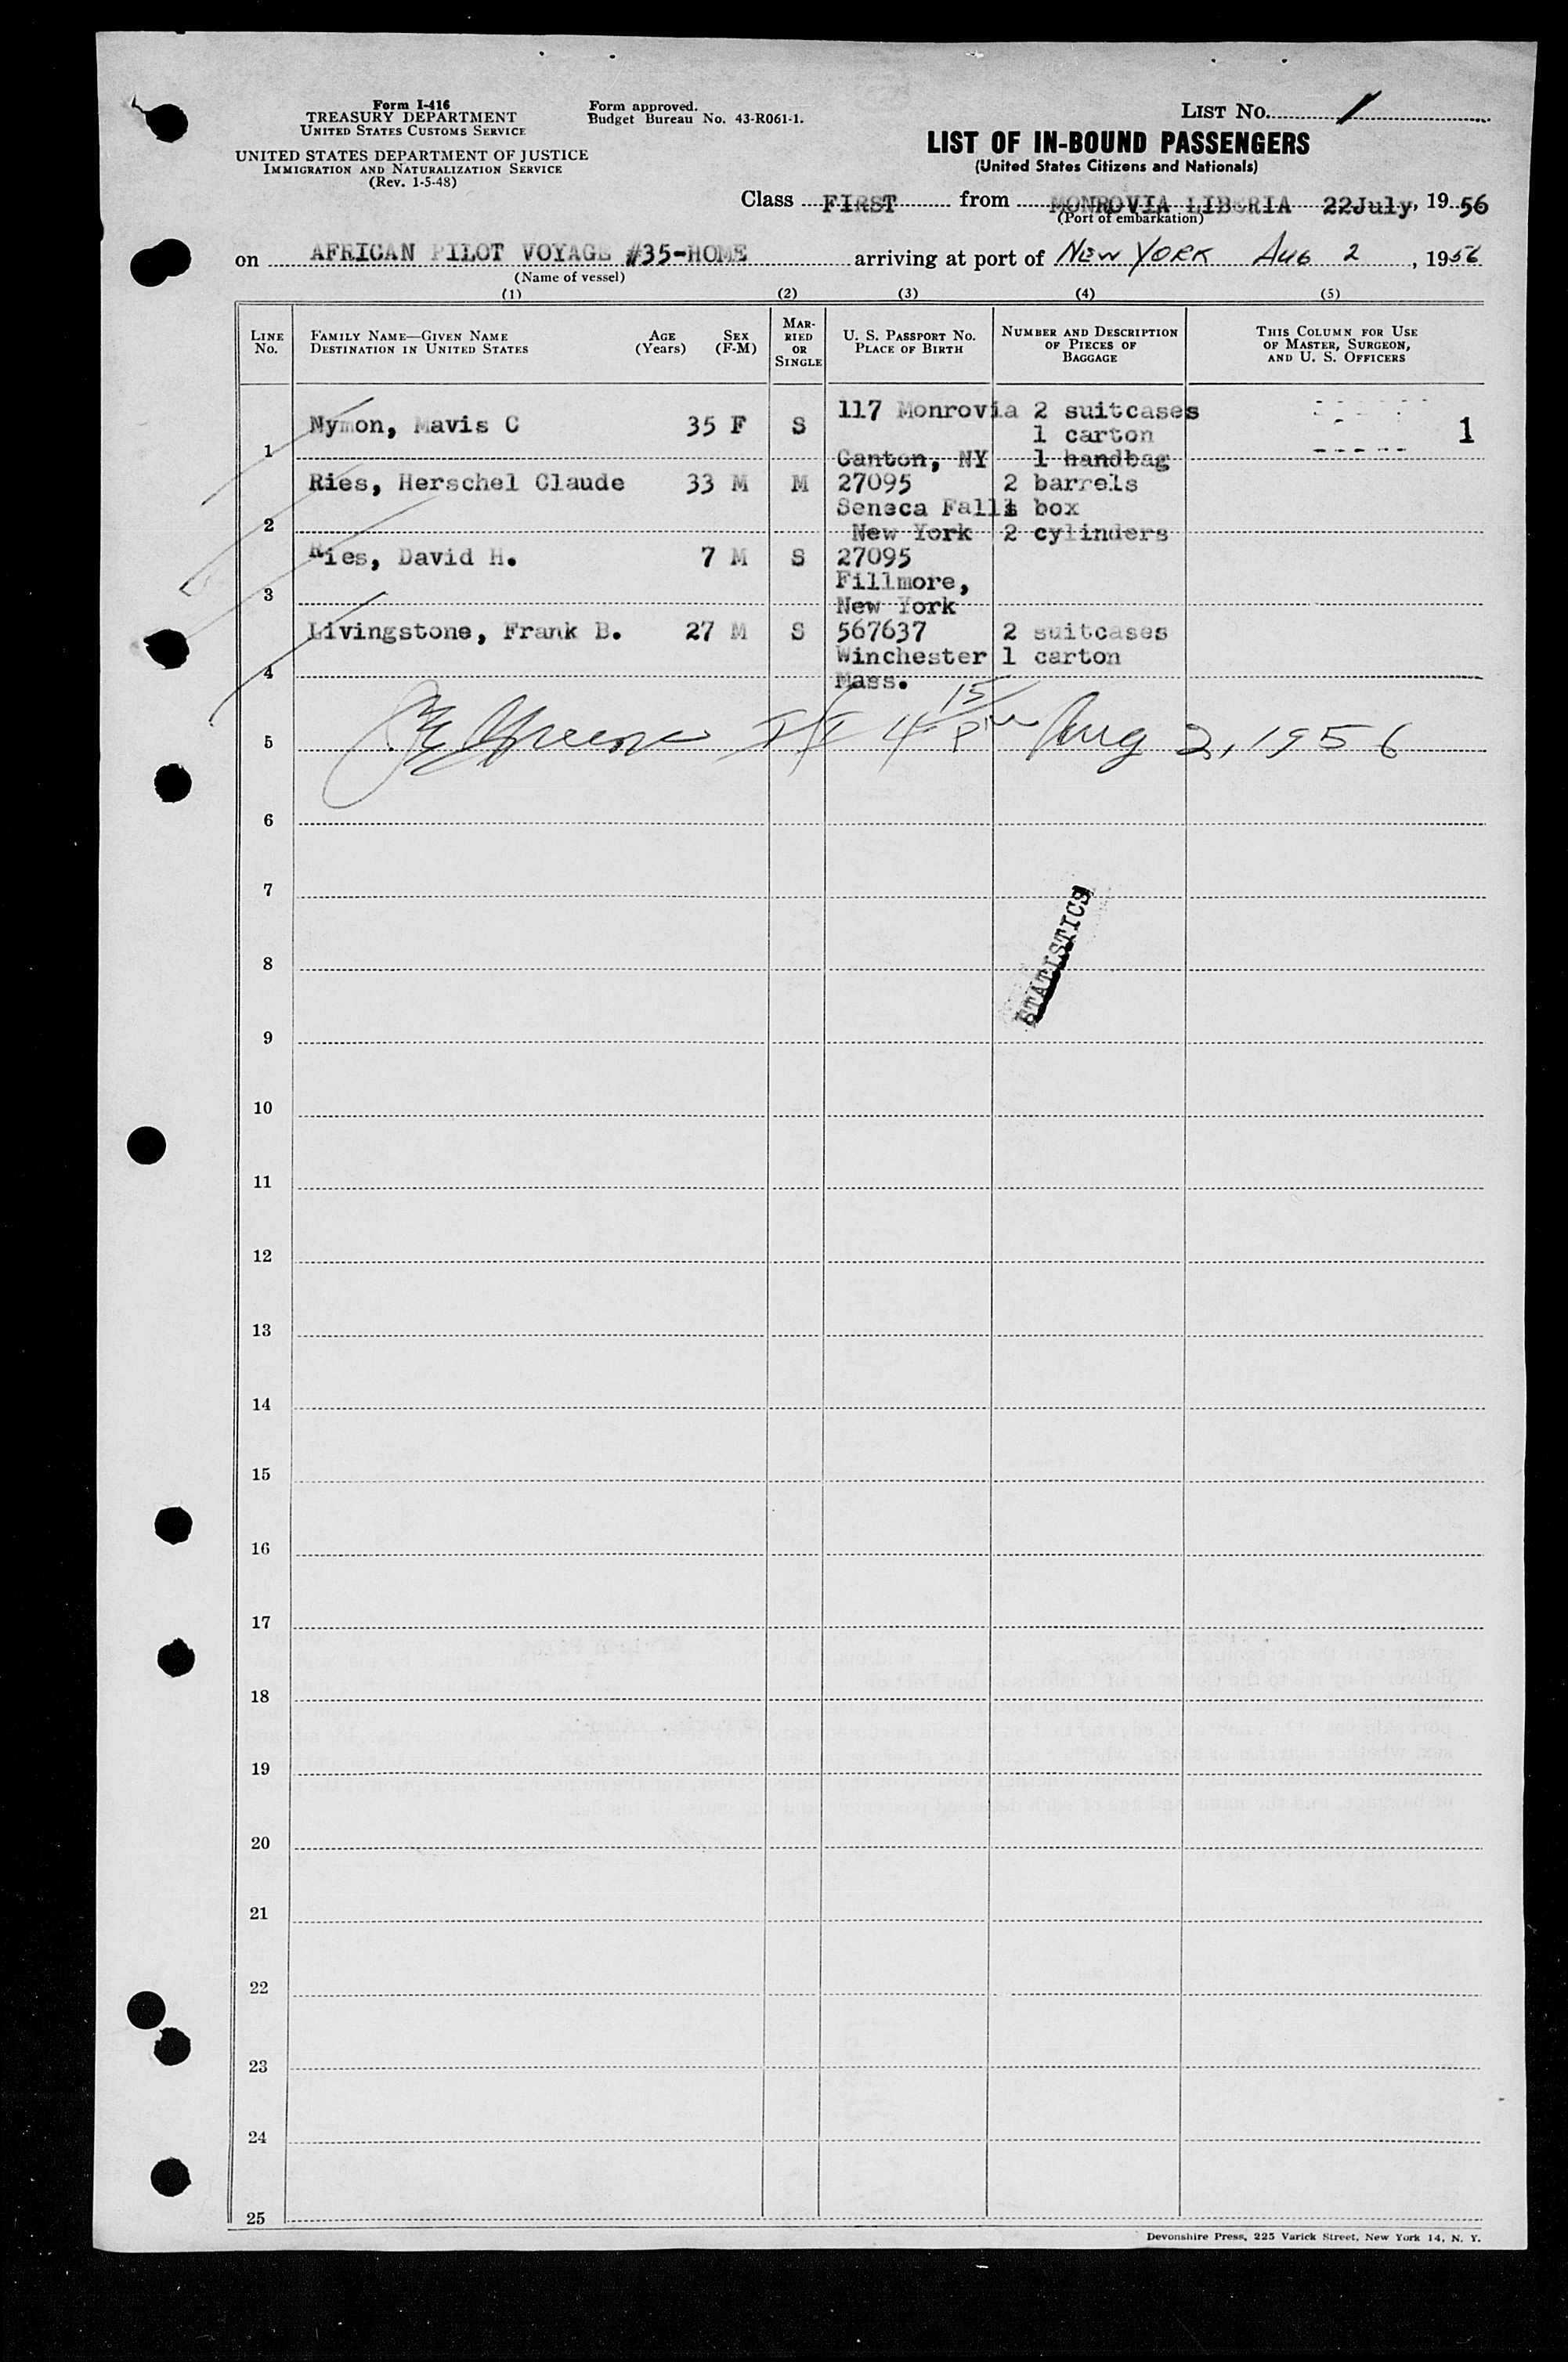 Form I-416
TREASURY DEPARTMENT
UNITED STATES CUSTOMS SERVICE
UNITED STATES DEPARTMENT OF JUSTICE
IMMIGRATION AND NATURALIZATION SERVICE
(Rev. 1-5-48)
Form approved.
Budget Bureau No. 43-R061-1.
LIST NO. 1
LIST OF IN-BOUND PASSENGERS
(United States Citizens and Nationals)
Class FIRST from MONROVIA LIBERIA 22July, 1956
(Port of embarkation)
on AFRICAN PILOT VOYAGE #35-HOME arriving at port of NEW YORK AUG 2, 1956
(Name of vessel)
(1) (2) (3) (4) (5)
LINE NO.
FAMILY NAME—GIVEN NAME
DESTINATION IN UNITED STATES
AGE (Years)
SEX (F-M)
MARRIED OR SINGLE
U. S. PASSPORT NO.
PLACE OF BIRTH
NUMBER AND DESCRIPTION
OF PIECES OF
BAGGAGE
THIS COLUMN FOR USE
OF MASTER, SURGEON,
AND U. S. OFFICERS
1 Nymon, Mavis C 35 F S 117 Monrovia 2 suitcases 1
1 carton
Canton, NY 1 handbag
2 Ries, Herschel Claude 33 M M 27095 2 barrels
Seneca Falls 1 box
New York 2 cylinders
3 Ries, David H. 7 M S 27095
Fillmore,
New York
4 Livingstone, Frank B. 27 M S 567637 2 suitcases
Winchester 1 carton
Mass.
5 4 15 Pm Aug 2, 1956
6
7
STATISTICS
8
9
10
11
12
13
14
15
16
17
18
19
20
21
22
23
24
25
Devonshire Press, 225 Varick Street, New York 14, N. Y.